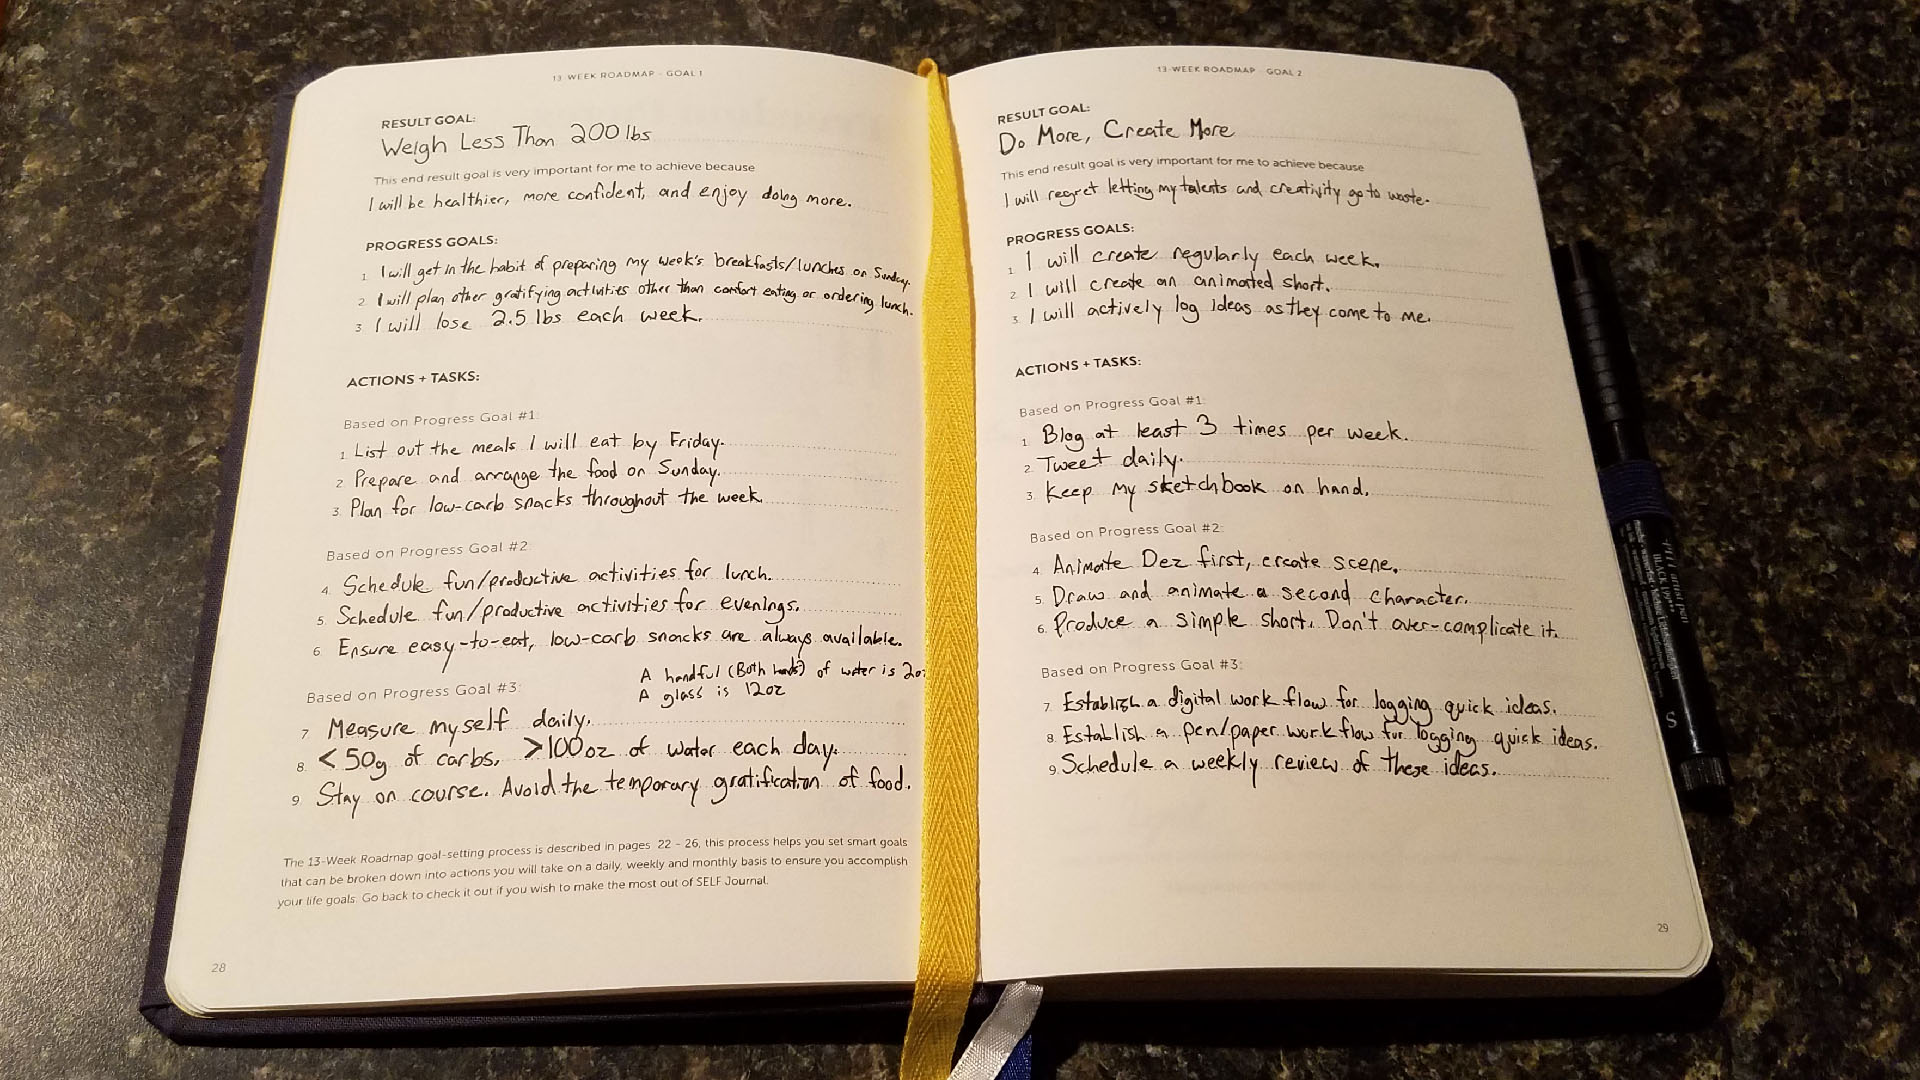 13-WEEK ROADMAP - GOAL 1
RESULT GOAL:
Weigh Less Than 200 lbs
This end result goal is very important for me to achieve because
I will be healthier, more confident, and enjoy doing more.
PROGRESS GOALS:
1. I will get in the habit of preparing my week's breakfasts/lunches on Sunday.
2. I will plan other gratifying activities other than comfort eating or ordering lunch.
3. I will lose 2.5 lbs each week.
ACTIONS + TASKS:
Based on Progress Goal #1:
1. List out the meals I will eat by Friday.
2. Prepare and arrange the food on Sunday.
3. Plan for low-carb snacks throughout the week.
Based on Progress Goal #2:
4. Schedule fun/productive activities for lunch.
5. Schedule fun/productive activities for evenings.
6. Ensure easy-to-eat, low-carb snacks are always available.
A handful (Both hands) of water is 2oz
A glass is 12oz
Based on Progress Goal #3:
7. Measure myself daily.
8. < 50g of carbs, >100oz of water each day.
9. Stay on course. Avoid the temporary gratification of food.
The 13-Week Roadmap goal-setting process is described in pages 22 - 26, this process helps you set smart goals
that can be broken down into actions you will take on a daily, weekly and monthly basis to ensure you accomplish
your life goals. Go back to check it out if you wish to make the most out of SELF Journal.
28
13-WEEK ROADMAP - GOAL 2
RESULT GOAL:
Do More, Create More
This end result goal is very important for me to achieve because
I will regret letting my talents and creativity go to waste.
PROGRESS GOALS:
1. I will create regularly each week.
2. I will create an animated short.
3. I will actively log ideas as they come to me.
ACTIONS + TASKS:
Based on Progress Goal #1:
1. Blog at least 3 times per week.
2. Tweet daily.
3. Keep my sketchbook on hand.
Based on Progress Goal #2:
4. Animate Dez first, create scene.
5. Draw and animate a second character.
6. Produce a simple short. Don't over-complicate it.
Based on Progress Goal #3:
7. Establish a digital work flow for logging quick ideas.
8. Establish a pen/paper work flow for logging quick ideas.
9. Schedule a weekly review of these ideas.
29
PITT artist pen
BLACK
S